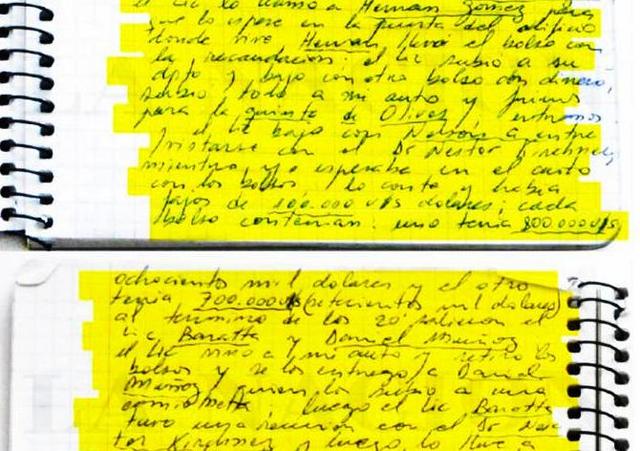 el Lic lo llamo a Hernan Gomez para
que lo espere en la puerta del edificio
donde vive Hernan llevó el bolso con
la recaudacion; el Lic subio a su
dpto y bajo con otro bolso con dinero,
subio todo a mi auto y fuimos
para la quinta de Olivos entramos
y el Lic bajo con Nelson a entre
vistarse con el Dr Nestor Kirchner,
mientras yo esperaba en el auto
con los bolsos, lo conte y habia
fajos de 100.000 U$s dolares; cada
bolso contenian: uno tenia 800.000U$s
ochocientos mil dolares y el otro
tenia 700.000U$s (setecientos mil dolares)
al termino de los 20' salieron el
Lic Baratta y Daniel Muñoz
el Lic vino a mi auto y retiro los
bolsos y se los entrego a Daniel
Muñoz, quien los subio a una
camioneta, luego el Lic Baratta
tuvo una reunion con el Dr Nes
tor Kirchner y luego lo lleve a